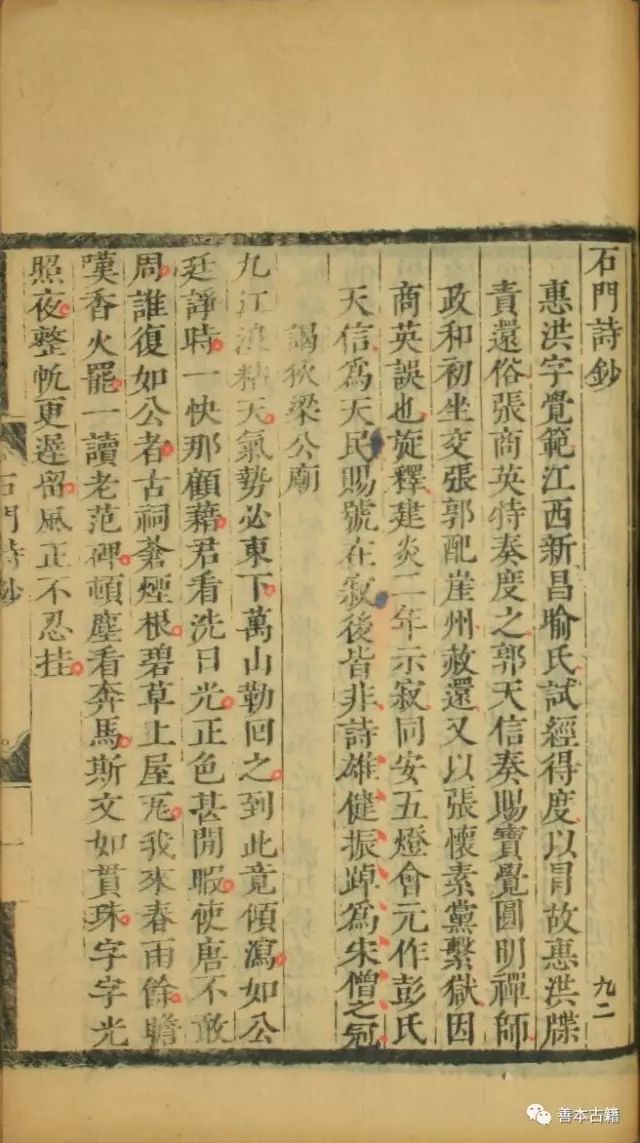 石門詩鈔
九二
惠洪字覺範江西新昌喻氏試經得度以冒故惠洪牒
責還俗張商英特奏度之郭天信奏賜寶覺圓明禪師
政和初坐交張郭配崖州赦還又以張懷素黨繫獄因
商英誤也旋釋建炎二年示寂同安五燈會元作彭氏
天信為天民賜號在寂後皆非詩雄健振踔為宋僧之冠
謁狄梁公廟
九江浪粘天氣勢必東下萬山勒回之到此竟傾瀉如公
廷諍時一快那顧藉君看洗日光正色甚閒暇使唐不敢
周誰復如公者古祠蒼煙根碧草上屋瓦我來春雨餘瞻
嘆香火罷一讀老范碑頓塵看奔馬斯文如貫珠字字光
照夜整帆更遲留風正不忍挂
石門詩鈔
善本古籍